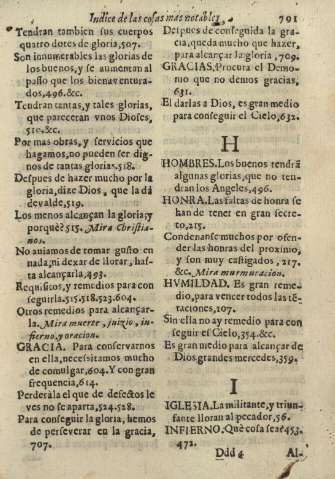 Indice de las cosas mas notables, 791
Tendran tambien sus cuerpos
quatro dotes de gloria, 507.
Son innumerables las glorias de
los buenos, y se aumentan al
passo que los bienaventura-
dos, 496. &c.
Tendran tantas, y tales glorias,
que pareceran vnos Dioses,
510. &c.
Por mas obras, y servicios que
hagamos, no pueden ser dig-
nos de tantas glorias. 518.
Despues de hazer mucho por la
gloria, dize Dios, que la dá
devalde, 519.
Los menos alcançan la gloria, y
porquè? 515. Mira Christia-
nos.
No aviamos de tomar gusto en
nada, ni dexar de llorar, has-
ta alcançarla, 493.
Requisitos, y remedios para con
seguirla. 515. 518. 523. 604.
Otros remedios para alcançar-
la. Mira muerte, juizio, in-
fierno, y oracion.
GRACIA. Para conservarnos
en ella, necessitamos mucho
de comulgar, 604. Y con gran
frequencia, 614.
Perderàla el que de defectos le
ves no se aparta, 524. 528.
Para conseguir la gloria, hemos
de perseverar en la gracia,
707.
Despues de conseguida la gra-
cia, queda mucho que hazer,
para alcançar la gloria, 709.
GRACIAS, Procura el Demo-
nio que no demos gracias,
631.
El darlas a Dios, es gran medio
para conseguir el Cielo, 632.
H
HOMBRES. Los buenos tendrã
algunas glorias, que no ten-
dran los Angeles, 496.
HONRA. Las faltas de honra se
han de tener en gran secre-
to, 215.
Condenanse muchos por ofen-
der las honras del proximo,
y son muy castigados, 217.
&c. Mira murmuracion.
HVMILDAD. Es gran reme-
dio, para vencer todos las tẽ-
taciones, 107.
Sin ella no ay remedio para con
seguir el Cielo, 354. &c.
Es gran medio para alcançar de
Dios grandes mercedes, 359.
I
IGLESIA. La militante, y triun-
fante lloran al pecador, 56.
INFIERNO. Què cosa sea? 453.
472.
Ddd 4 Al-